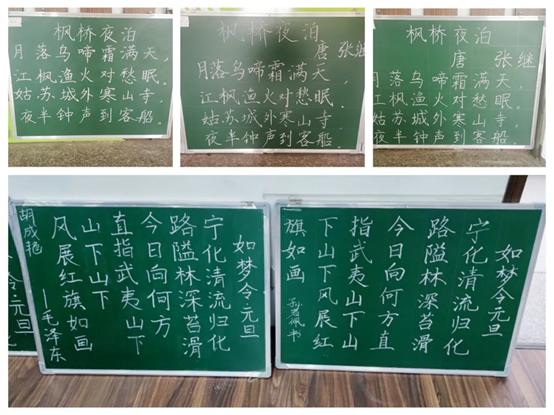 枫桥夜泊
月落乌啼霜满天，
江枫渔火对愁眠。
姑苏城外寒山寺，
夜半钟声到客船。
枫桥夜泊
唐 张继
月落乌啼霜满天，
江枫渔火对愁眠。
姑苏城外寒山寺，
夜半钟声到客船。
枫桥夜泊
唐 张继
月落乌啼霜满天，
江枫渔火对愁眠。
姑苏城外寒山寺，
夜半钟声到客船。
如梦令元旦
宁化清流归化
路隘林深苔滑
今日向何方
直指武夷山下
山下山下
风展红旗如画
—毛泽东
胡成艳
如梦令元旦
宁化清流归化
路隘林深苔滑
今日向何方直
指武夷山下山
下山下风展红
旗如画